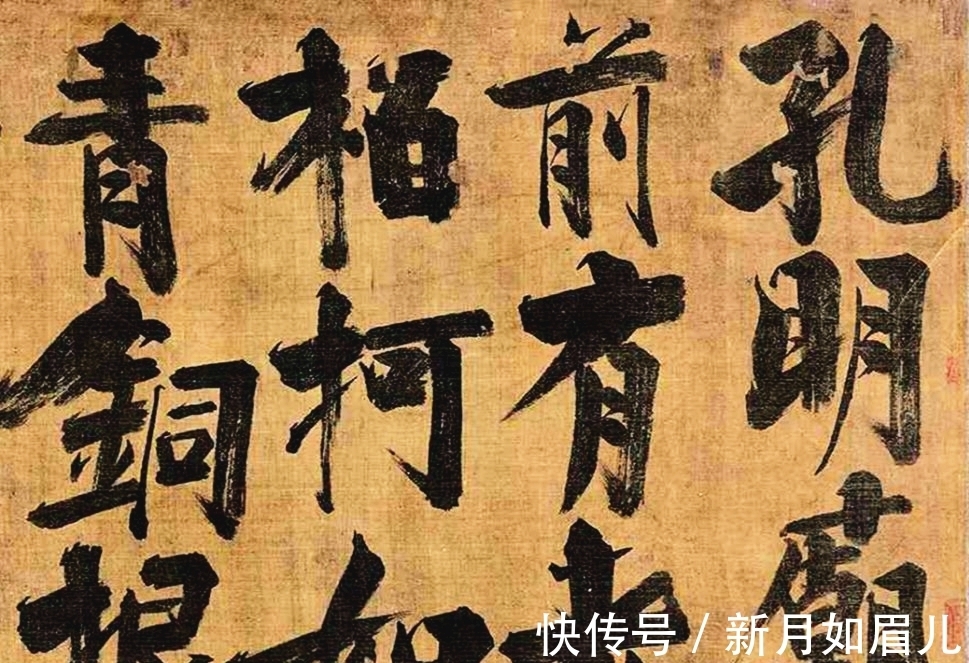 孔明廟
前有老
柏柯如
青銅根
快传号 / 新月如眉儿